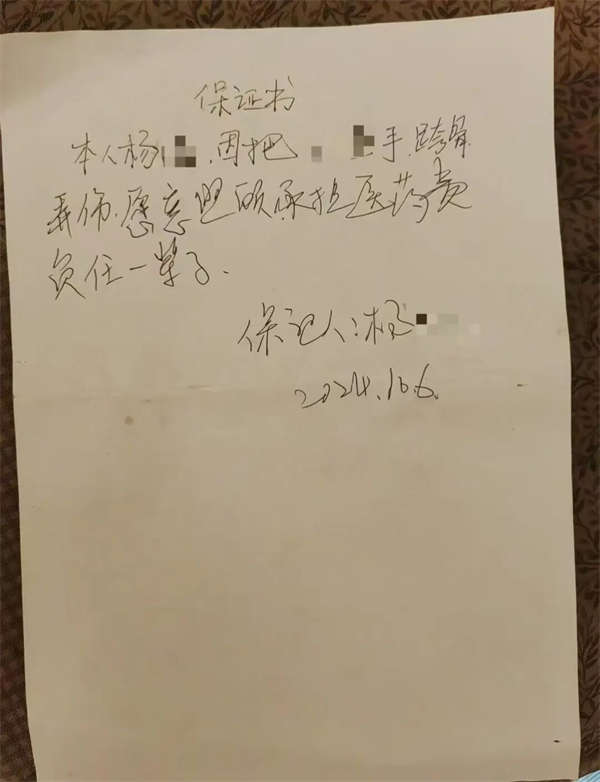 保证书
本人杨 因把 手,跨骨
弄伤.愿意照顾承担医药费
负任一辈子.
保证人:杨
2024.10.6.